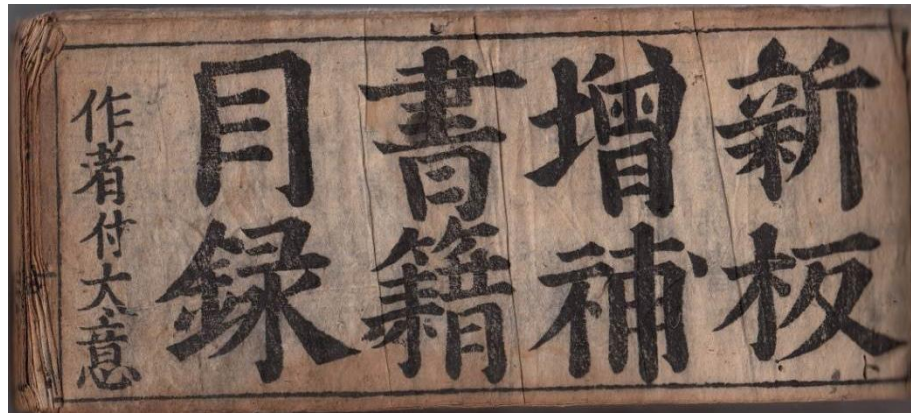 新板
增補
書籍
目録
作者付大意